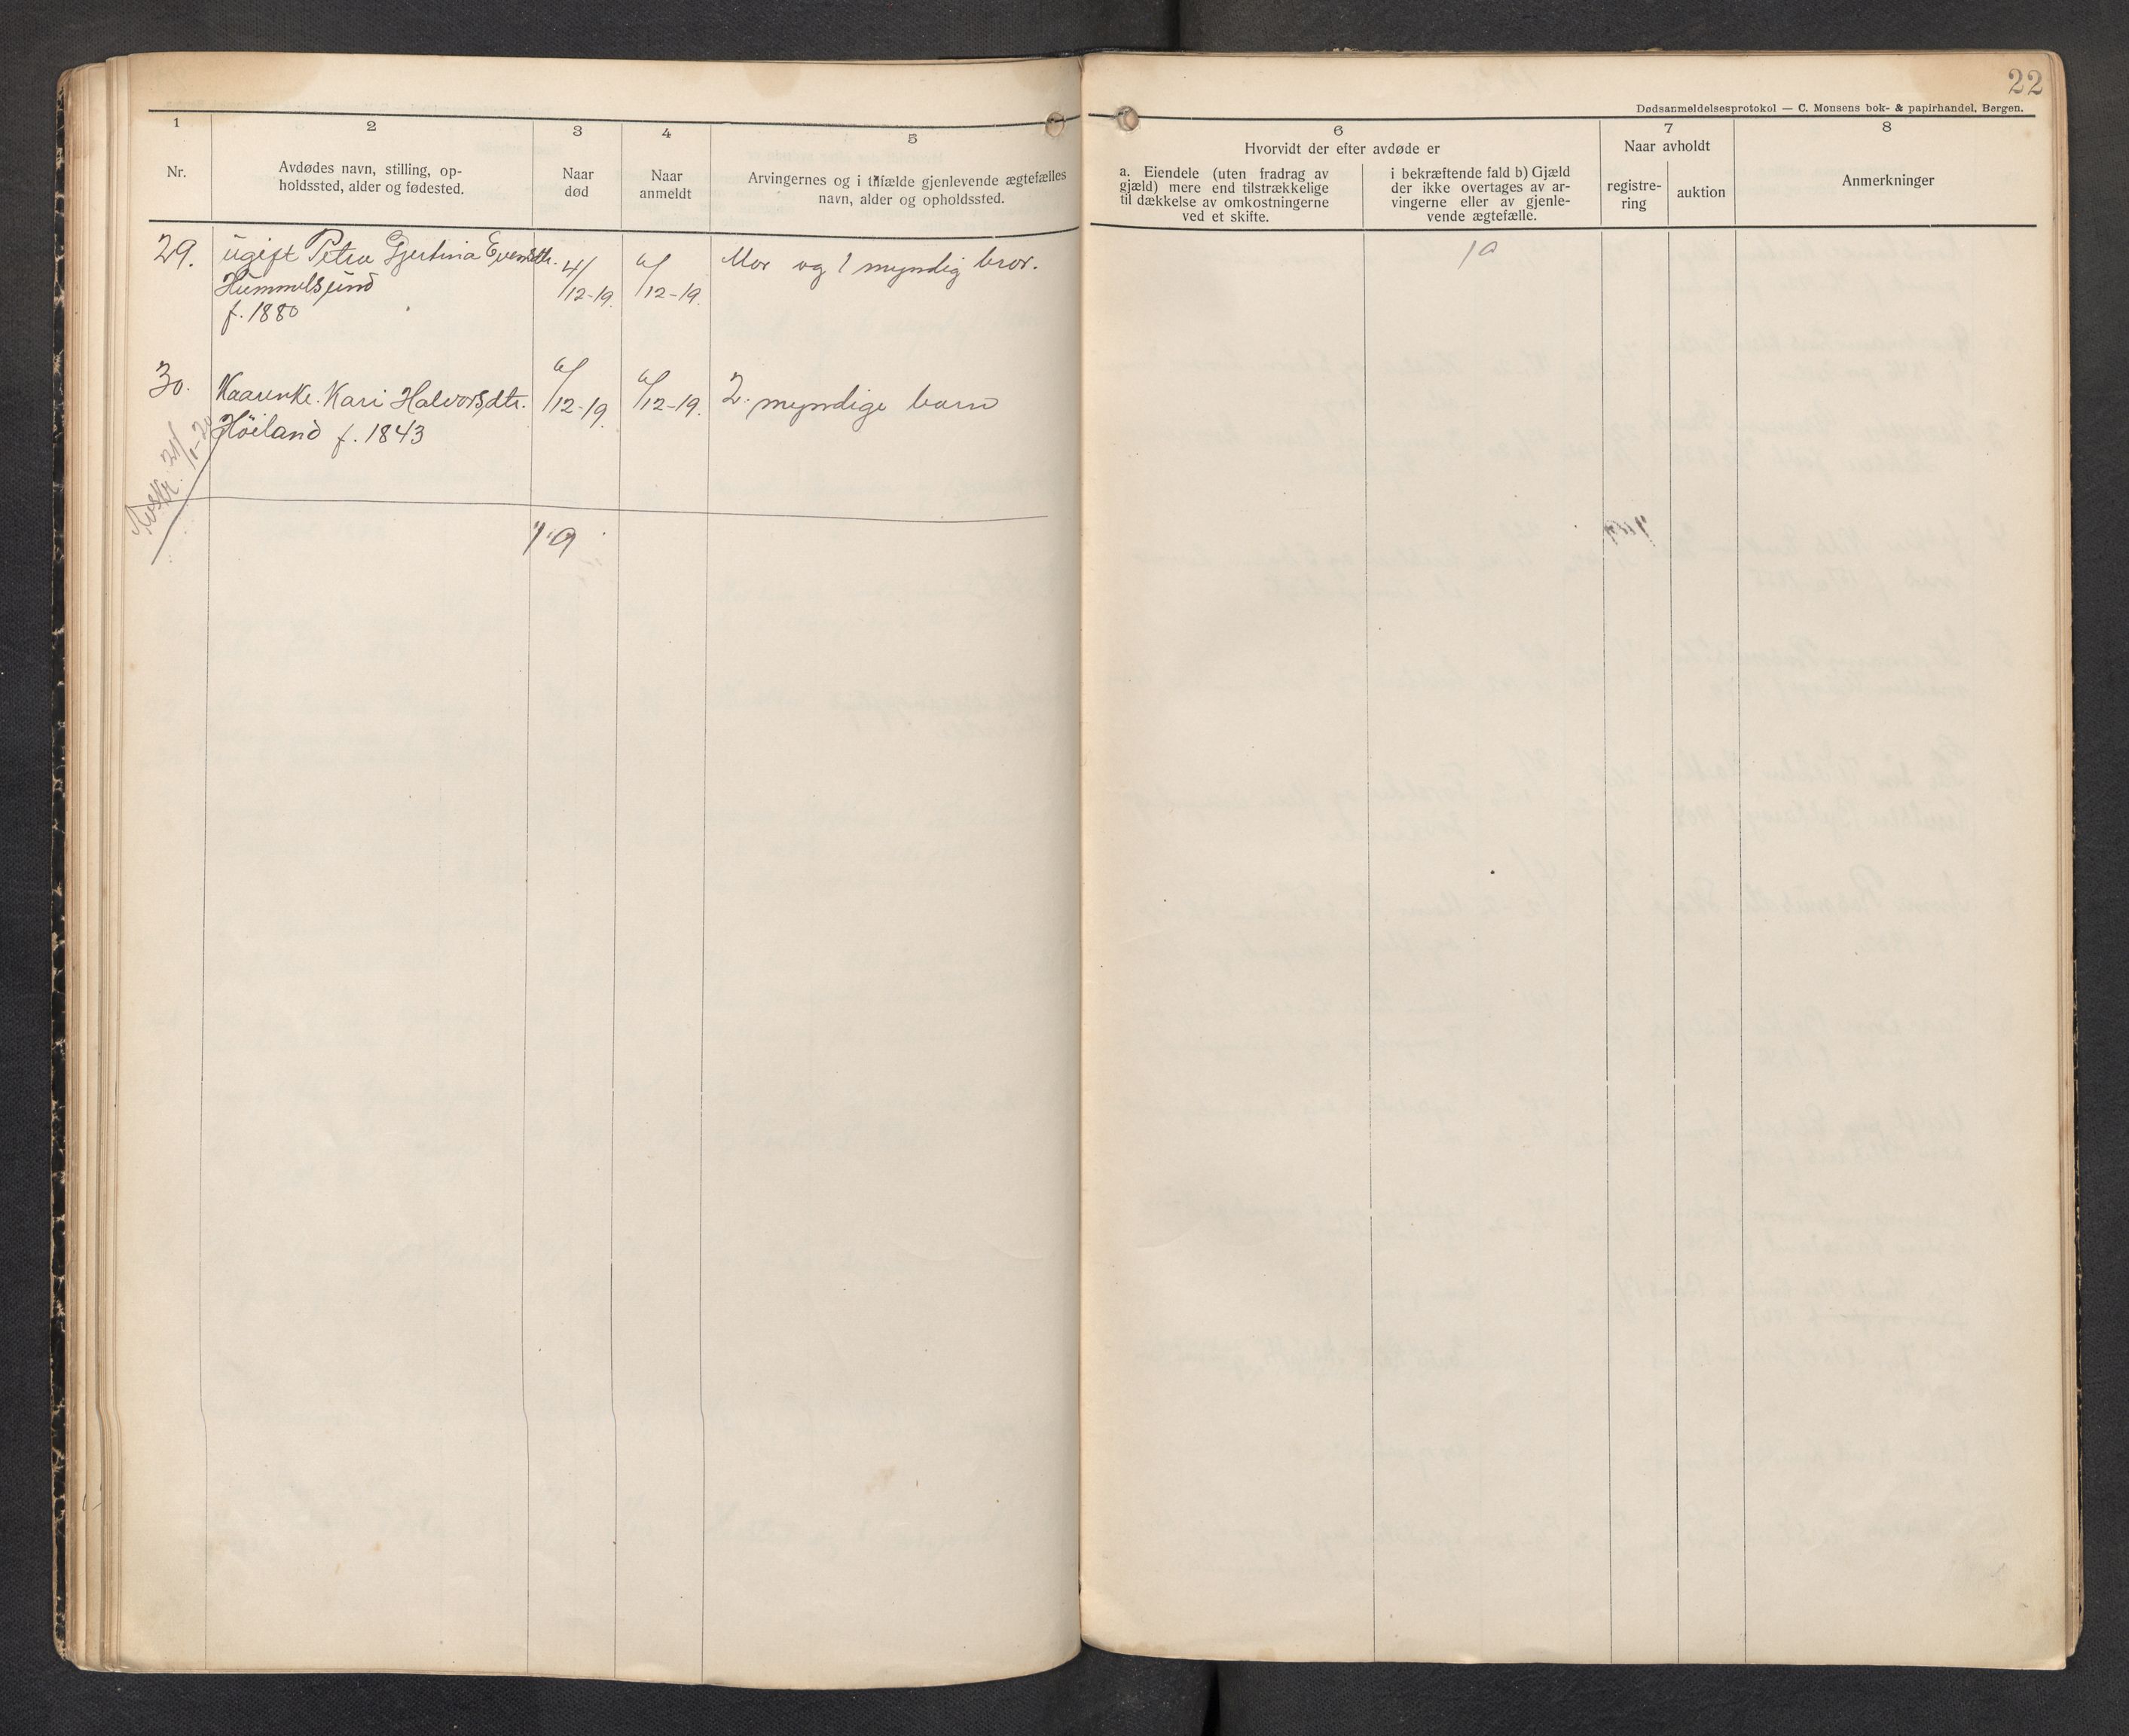 22
Dødsanmeldelsesprotokol — C. Monsens bok- & papirhandel, Bergen.
1
Nr.
2
Avdødes navn, stilling, op-
holdssted, alder og fødested.
3
Naar
død
4
Naar
anmeldt
5
Arvingernes og i tilfælde gjenlevende ægtefælles
navn, alder og opholdssted.
6
Hvorvidt der efter avdøde er
a. Eiendele (uten fradrag av
gjæld) mere end tilstrækkelige
til dækkelse av omkostningerne
ved et skifte.
i bekræftende fald b) Gjæld
der ikke overtages av ar-
vingerne eller av gjenle-
vende ægtefælle.
7
Naar avholdt
registre-
ring
auktion
8
Anmerkninger
29. ugift Petra Gjertina Evensdtr. 4/12-19. 6/12-19. Mor og 1 myndig bror.
Hummelsund
f. 1880
30. Kaarenke. Kari Halvorsdtr. 6/12-19. 6/12-19. 2 myndige barn
Höiland f. 1843